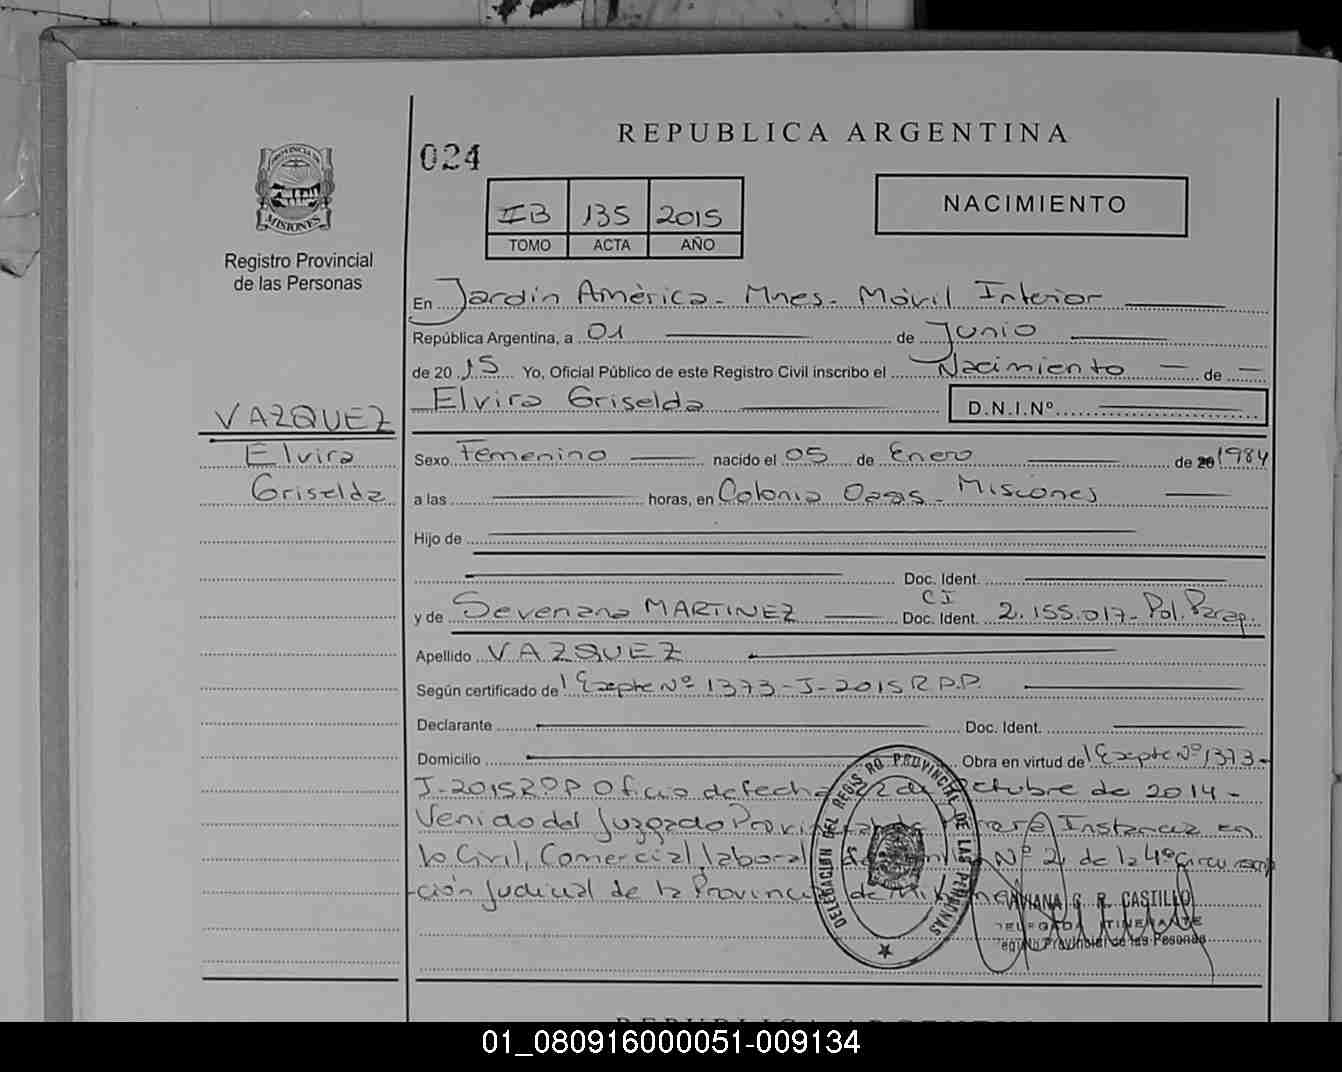 REPUBLICA ARGENTINA
024
PROVINCIA DE
MISIONES
Registro Provincial
de las Personas
IIB 135 2015
TOMO ACTA AÑO
NACIMIENTO
En Jardín América - Mnes - Móvil Interior
República Argentina, a 01 de Junio
de 2015 Yo, Oficial Público de este Registro Civil inscribo el Nacimiento de
Elvira Griselda D.N.I.Nº
VAZQUEZ
Elvira
Griselda
Sexo Femenino nacido el 05 de Enero de 20 1984
a las horas, en Colonia Oasis - Misiones
Hijo de
Doc. Ident.
y de Severiana MARTINEZ Doc. Ident. CI 2.155.017- Pol. Parag.
Apellido VAZQUEZ
Según certificado de Expte Nº 1373-J-2015 R.P.P.
Declarante Doc. Ident.
Domicilio Obra en virtud de Expte Nº 1373-
J-2015 RPP Oficio de fecha 22 de Octubre de 2014 -
Venido del Juzgado Provincial de Primera Instancia en
lo Civil, Comercial, laboral de Familia Nº 2, de la 4º Circunscrip
-ción Judicial de la Provincia de Misiones
DELEGACION DEL REGISTRO PROVINCIAL DE LAS PERSONAS
VIVIANA G. R. CASTILLO
DELEGADA ITINERANTE
Registro Provincial de las Personas
REPUBLICA ARGENTINA
01_080916000051-009134